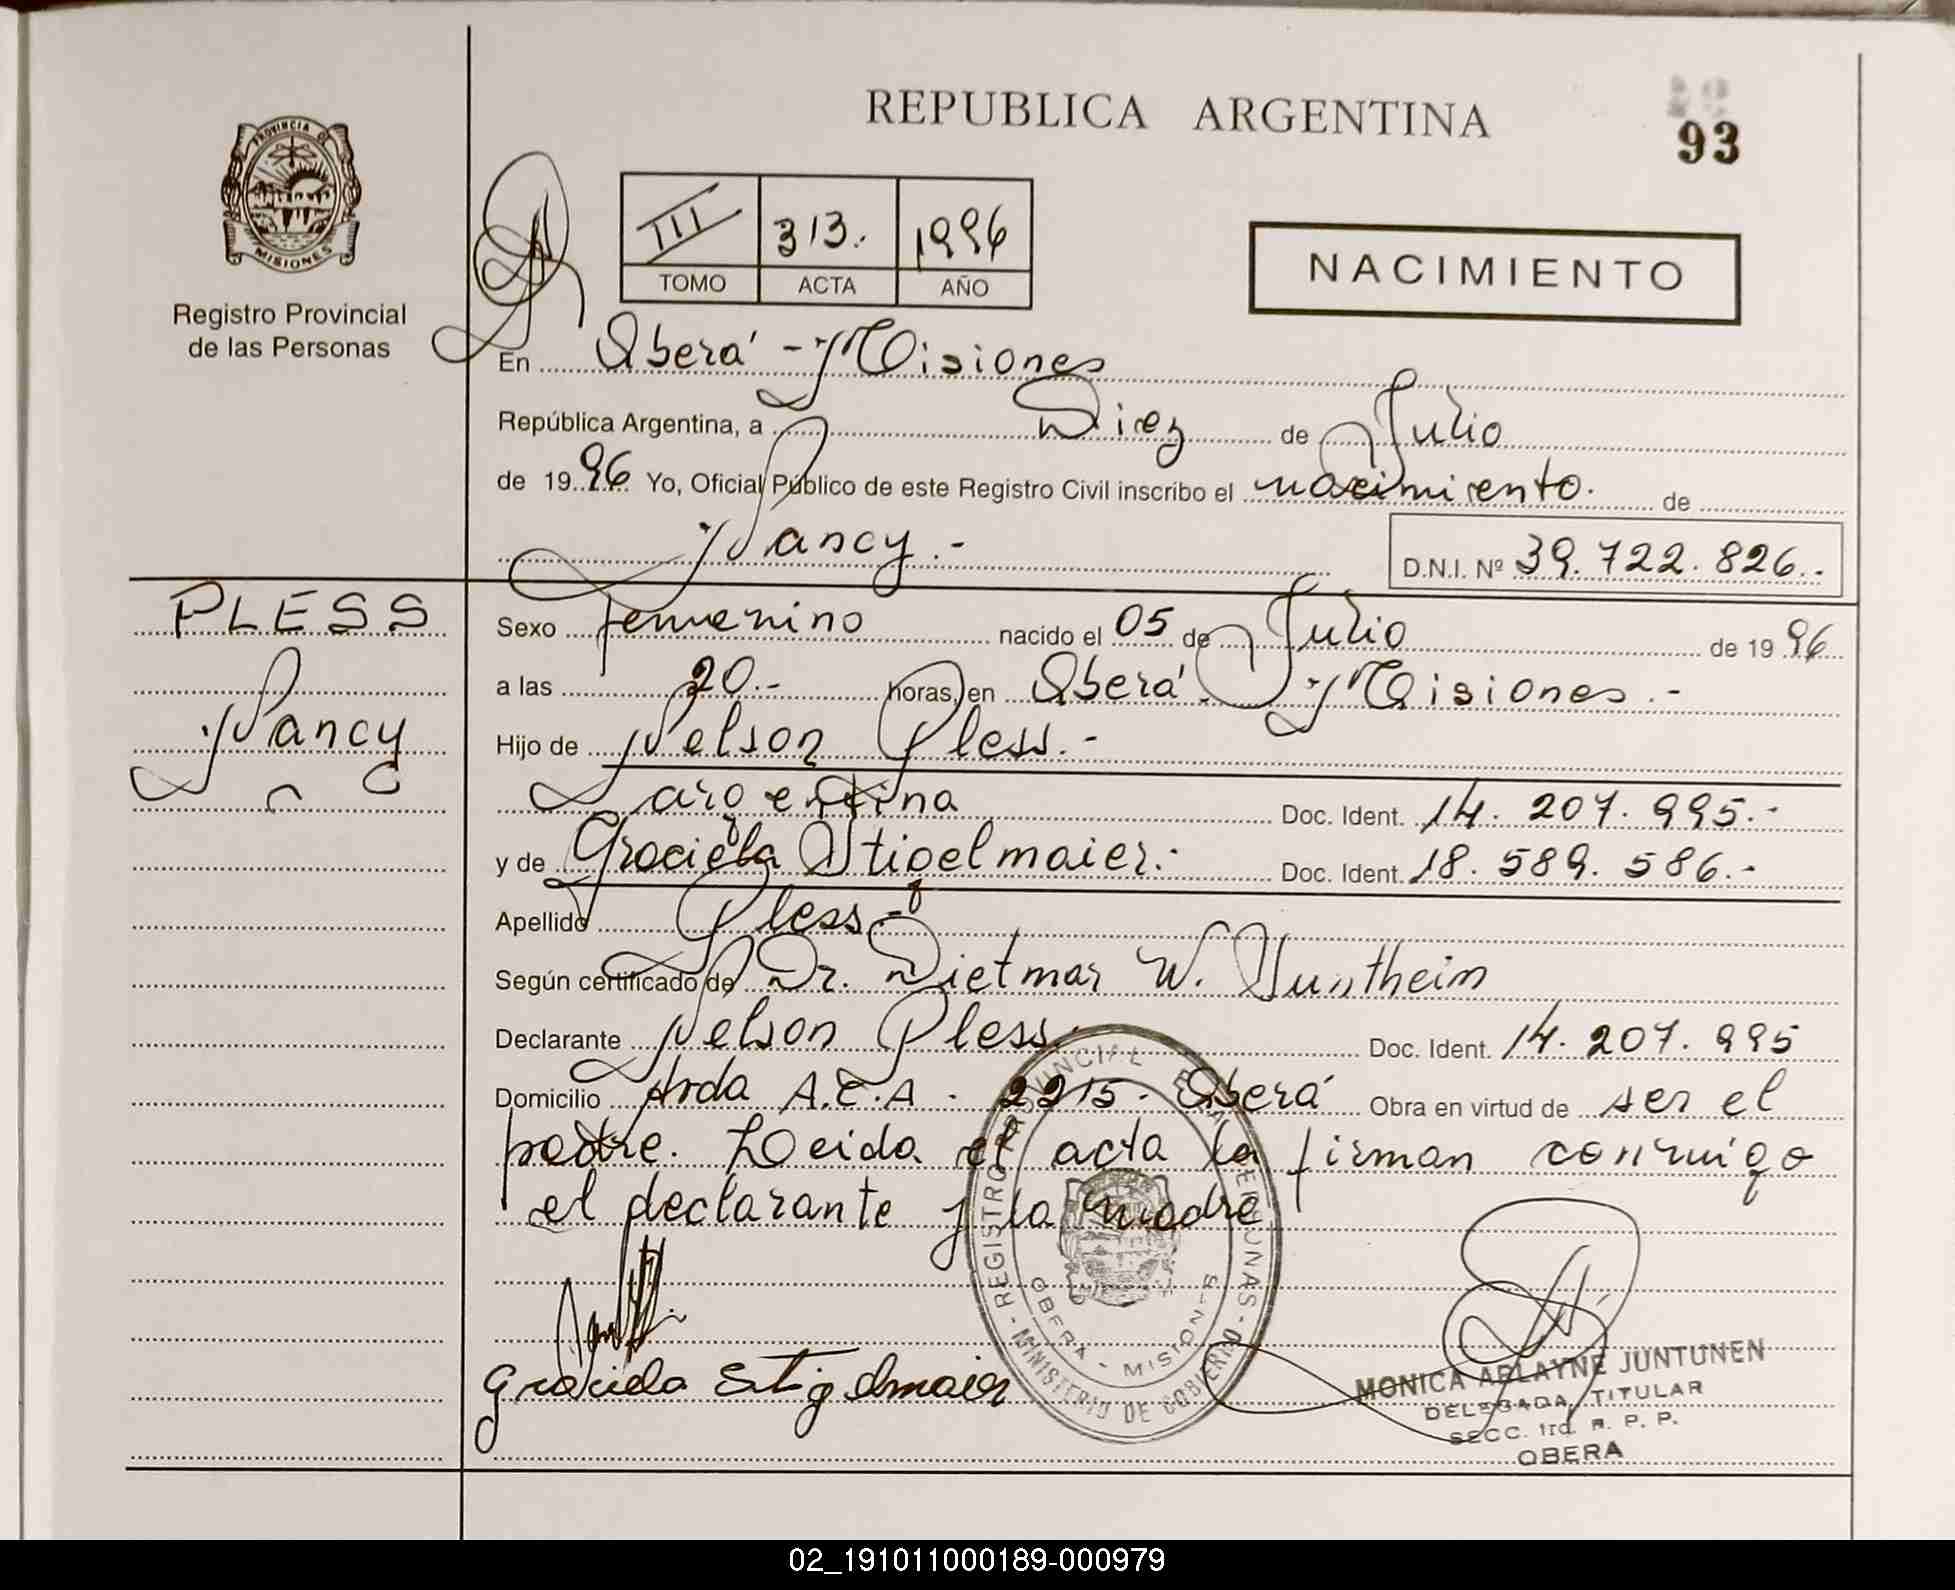 REPUBLICA ARGENTINA
93
PROVINCIA DE
MISIONES
Registro Provincial
de las Personas
III 313. 1996
TOMO ACTA AÑO
NACIMIENTO
En Oberá - Misiones
República Argentina, a Diez de Julio
de 1996 Yo, Oficial Público de este Registro Civil inscribo el nacimiento. de
Nancy.-
D.N.I. Nº 39.722.826.-
PLESS
Nancy
Sexo femenino nacido el 05 de Julio de 1996
a las 20.- horas, en Oberá Misiones.-
Hijo de Nelson Pless.-
argentina Doc. Ident. 14.207.995.-
y de Graciela Stigelmaier.- Doc. Ident. 18.589.586.-
Apellido Pless-
Según certificado de Dr. Dietmar W.
Declarante Nelson Pless Doc. Ident. 14.207.995
Domicilio Avda A.C.A. 2215. Oberá Obra en virtud de ser el
padre. Leida el acta la firman conmigo
el declarante y la madre
Graciela Stigelmaier
REGISTRO PROVINCIAL DE LAS PERSONAS - MINISTERIO DE GOBIERNO
OBERA - MISIONES
MONICA ARLAYNE JUNTUNEN
DELEGADA TITULAR
SECC. 1ra. R. P. P.
OBERA
02_191011000189-000979